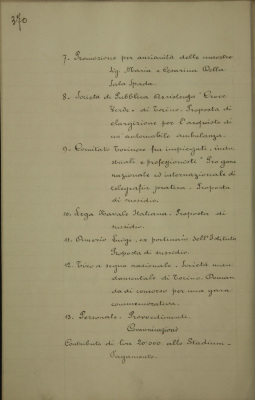 370
7. Promozione per anzianità delle maestre
Sig. Maria e Caterina Della
Sala Spada.
8. Società di Pubblica Assistenza "Croce
Verde" di Torino. Proposta di
elargizione per l'acquisto di
un automobile ambulanza.
9. Comitato Torinese fra impiegati, indu
striali e professionisti "Pro gara
nazionale ed internazionale di
telegrafia pratica. Proposta
di sussidio.
10. Lega Navale Italiana. Proposta di
sussidio.
11. Luigi, ex portinaio dell'Istituto
Proposta di sussidio.
12. Tiro a segno nazionale. Società man
damentale di Torino. Doman
da di concorso per una gara
commemorativa.
13. Personale. Provvedimenti.
Comunicazioni
Contributo di lire 20.000 allo Stadium.
Pagamento.